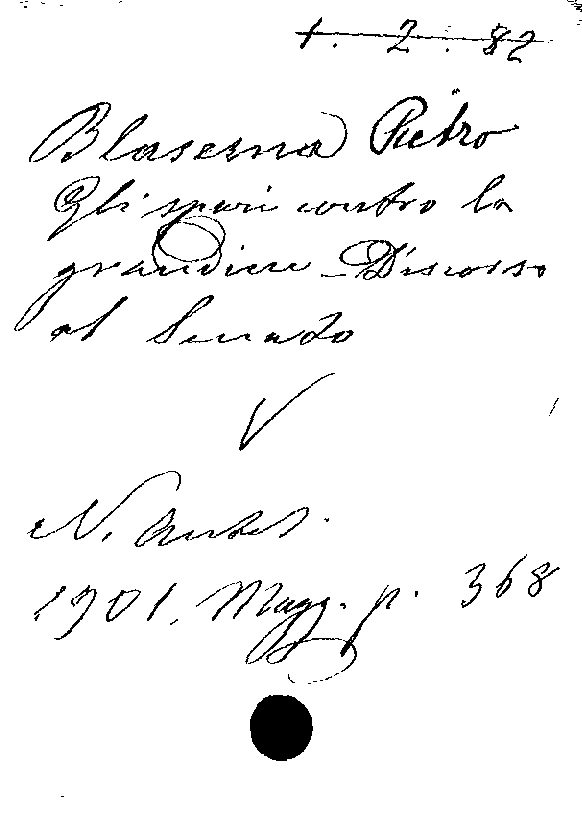 1. 2. 82
Blaserna Pietro
Gli spari contro la
grandine - Discorso
al Senato
V
N. Antol.
1901. Magg. p. 368